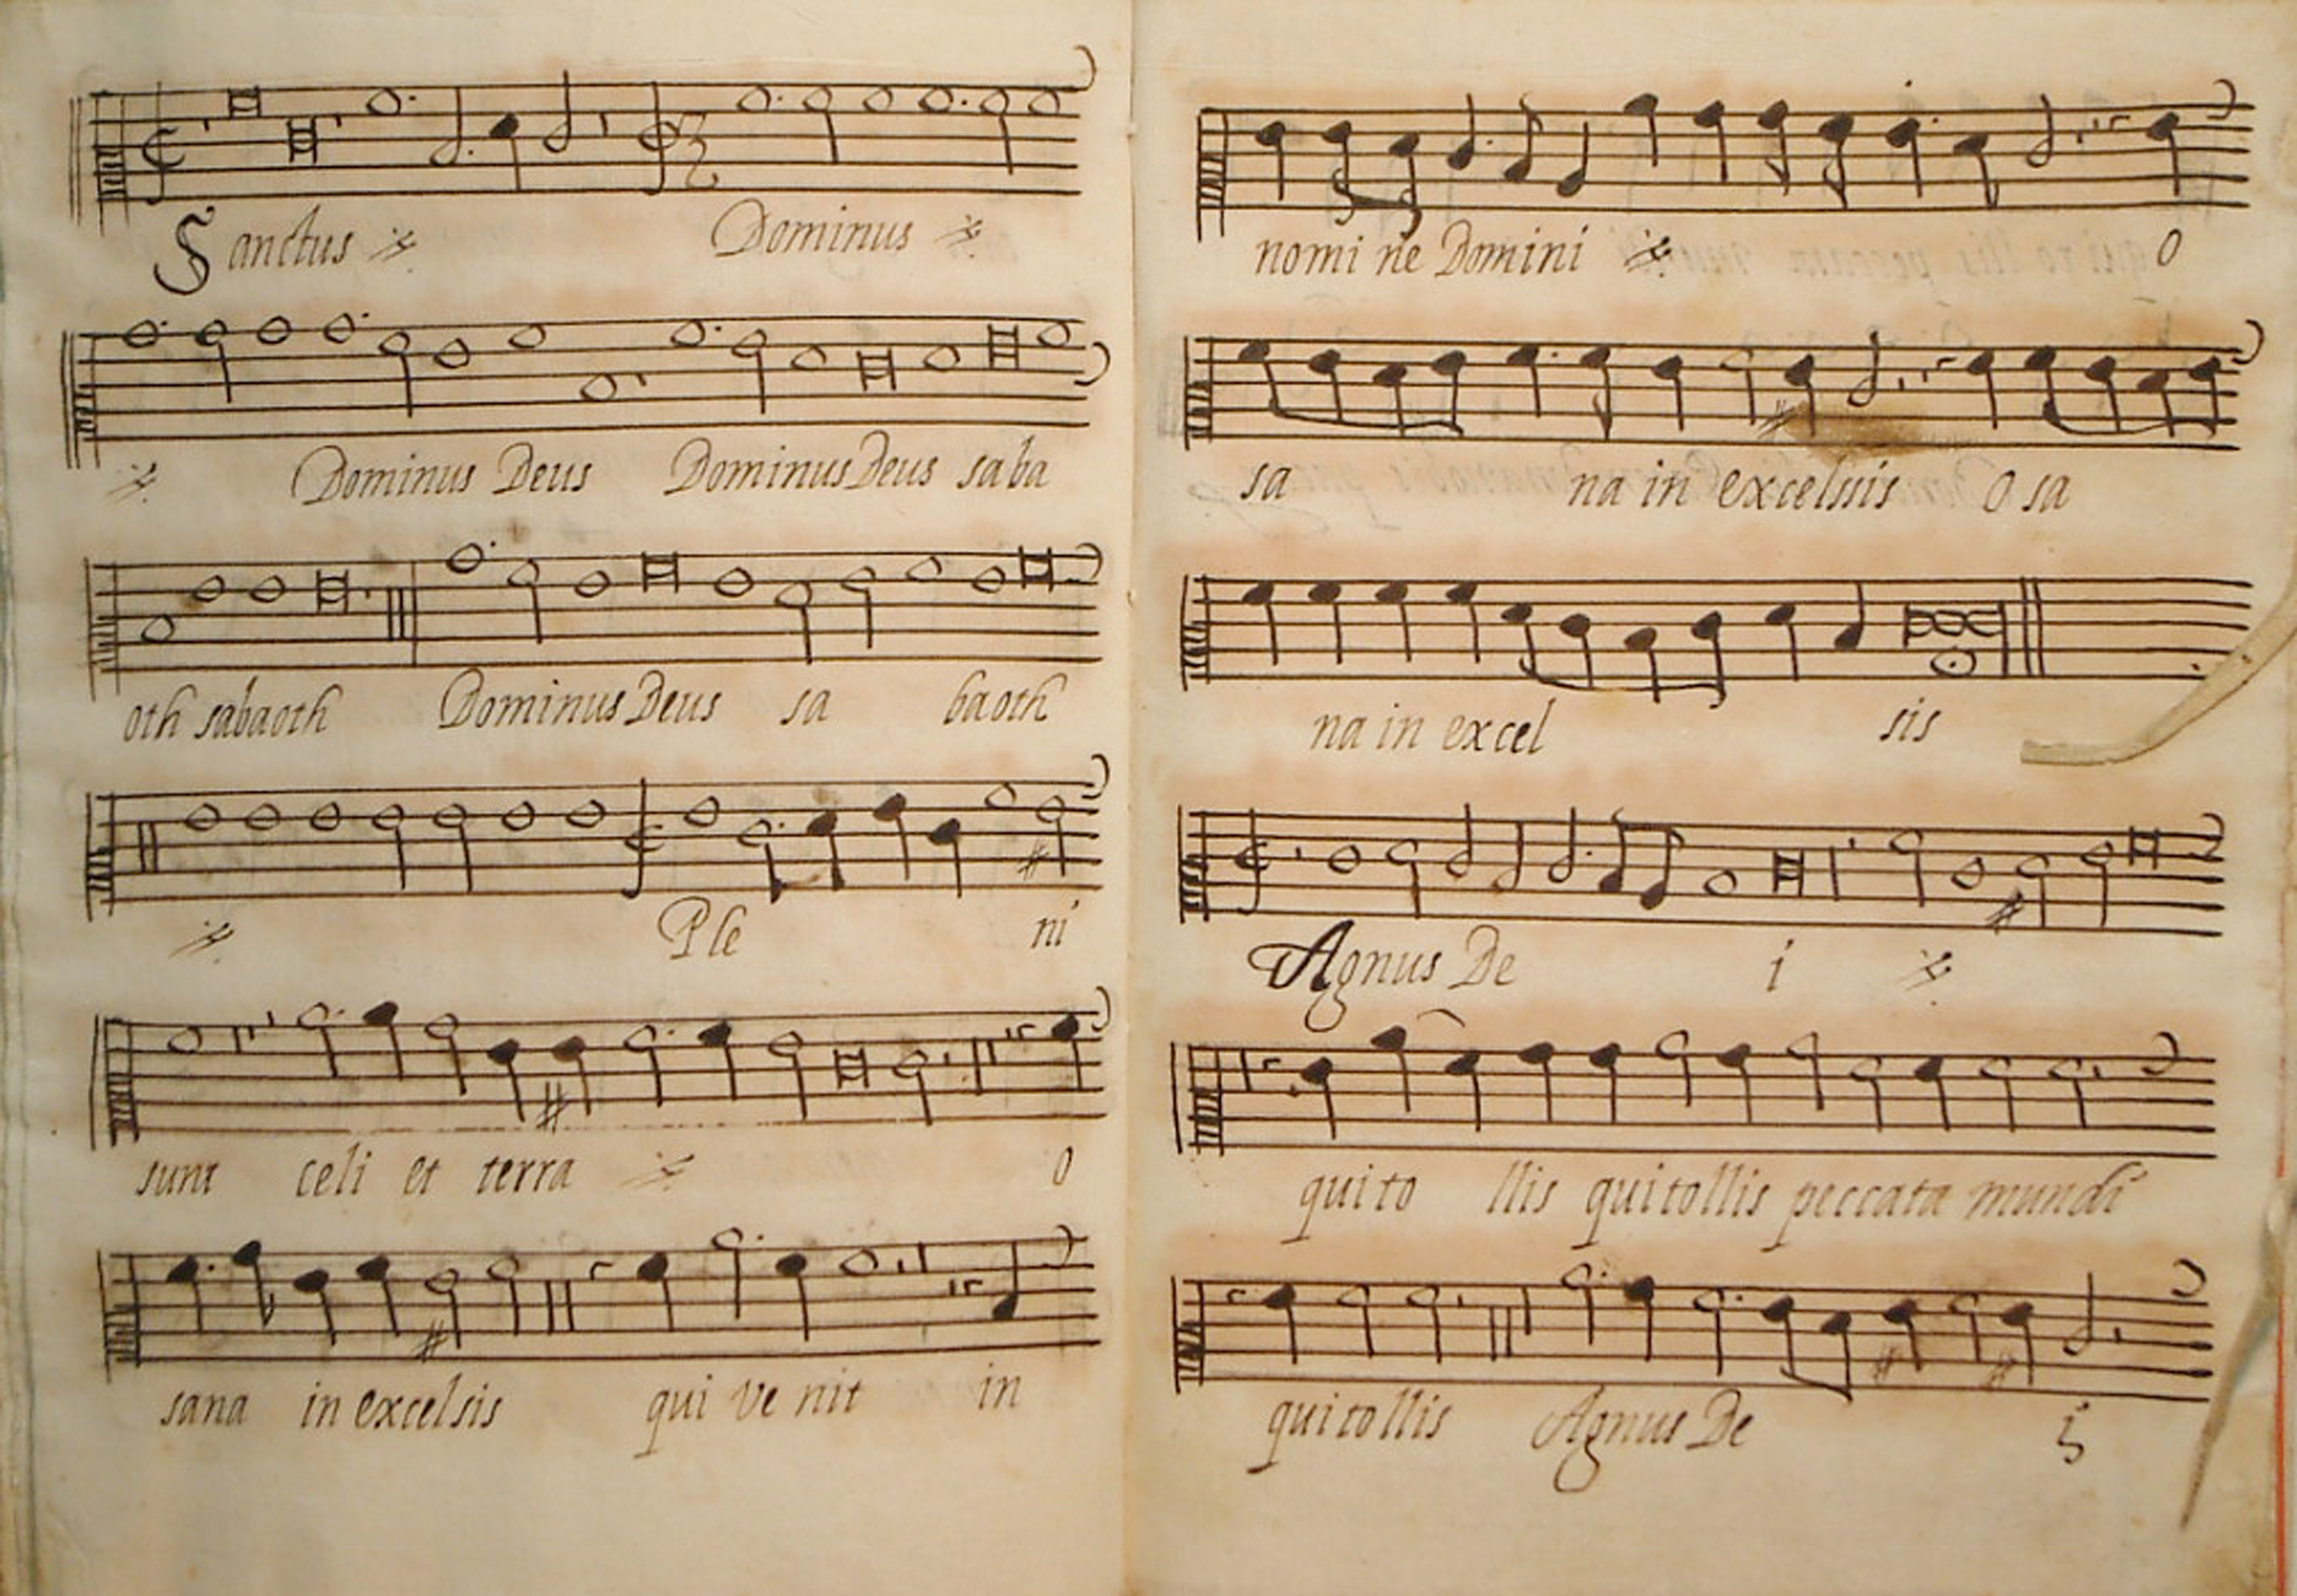 Sanctus Dominus
Dominus Deus Dominus Deus saba
oth sabaoth Dominus Deus sa baoth
Ple ni
sunt celi et terra O
sana in excelsis qui ve nit in
nomi ne Domini O
sa na in excelssis O sa
na in excel sis
Agnus De i
qui to llis qui tollis peccata mundi
qui tollis Agnus De i